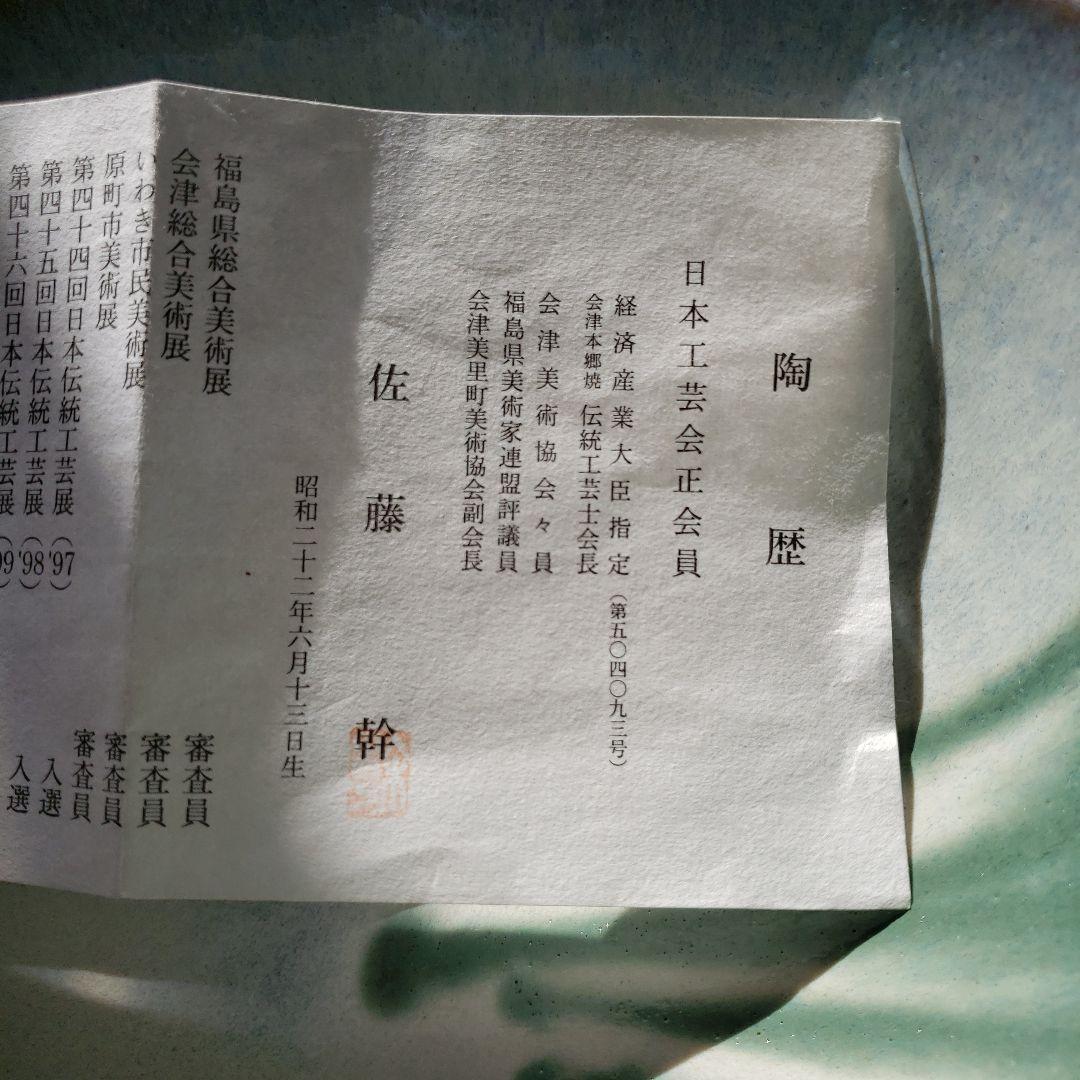 陶歴
日本工芸会正会員
経済産業大臣指定（第五〇四〇九三号）
会津本郷焼 伝統工芸士会長
会津美術協会々員
福島県美術家連盟評議員
会津美里町美術協会副会長
佐藤幹
昭和二十二年六月十三日生
福島県総合美術展 審査員
会津総合美術展 審査員
いわき市民美術展 審査員
原町市美術展 審査員
第四十四回日本伝統工芸展（'97） 入選
第四十五回日本伝統工芸展（'98） 入選
第四十六回日本伝統工芸展